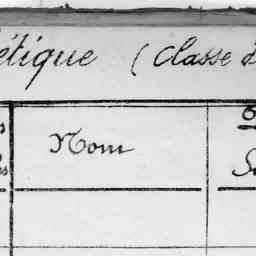 étique (Classe d
Nom